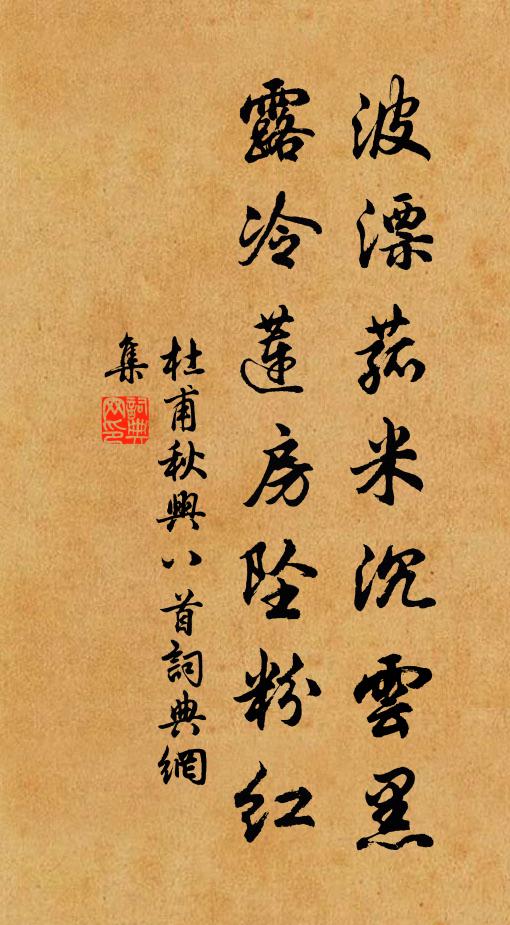 波漂菰米沉雲黑
露冷蓮房坠粉紅
杜甫秋興八首詞典網
集
詞典
网印